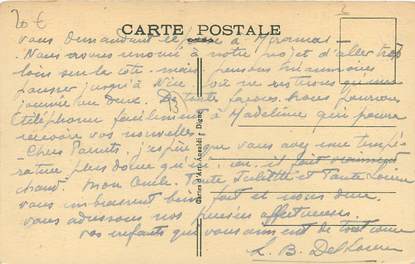 20 €
CARTE POSTALE
vous demandant ce à Miramas
Nous avons renoncé à notre projet d'aller trop
loin sur la côte mais pensons néanmoins
pousser jusqu'à Nice où ne resterons qu'une
journée ou deux. De toute façons nous pourrons
téléphoner facilement à Madeleine qui pourra
recevoir vos nouvelles.
Chers Parents, j'espère que vous avez une tempé-
rature plus douce qu'ici, car il fait vraiment
chaud. Mon Oncle, Tante Juliette et Tante
vous embrassent bien fort et nous deux
vous adressons nos pensées affectueuses.
vos enfants qui vous aiment de tout cœur
L. B.
Cartes d'Art Ansaldi - Digne